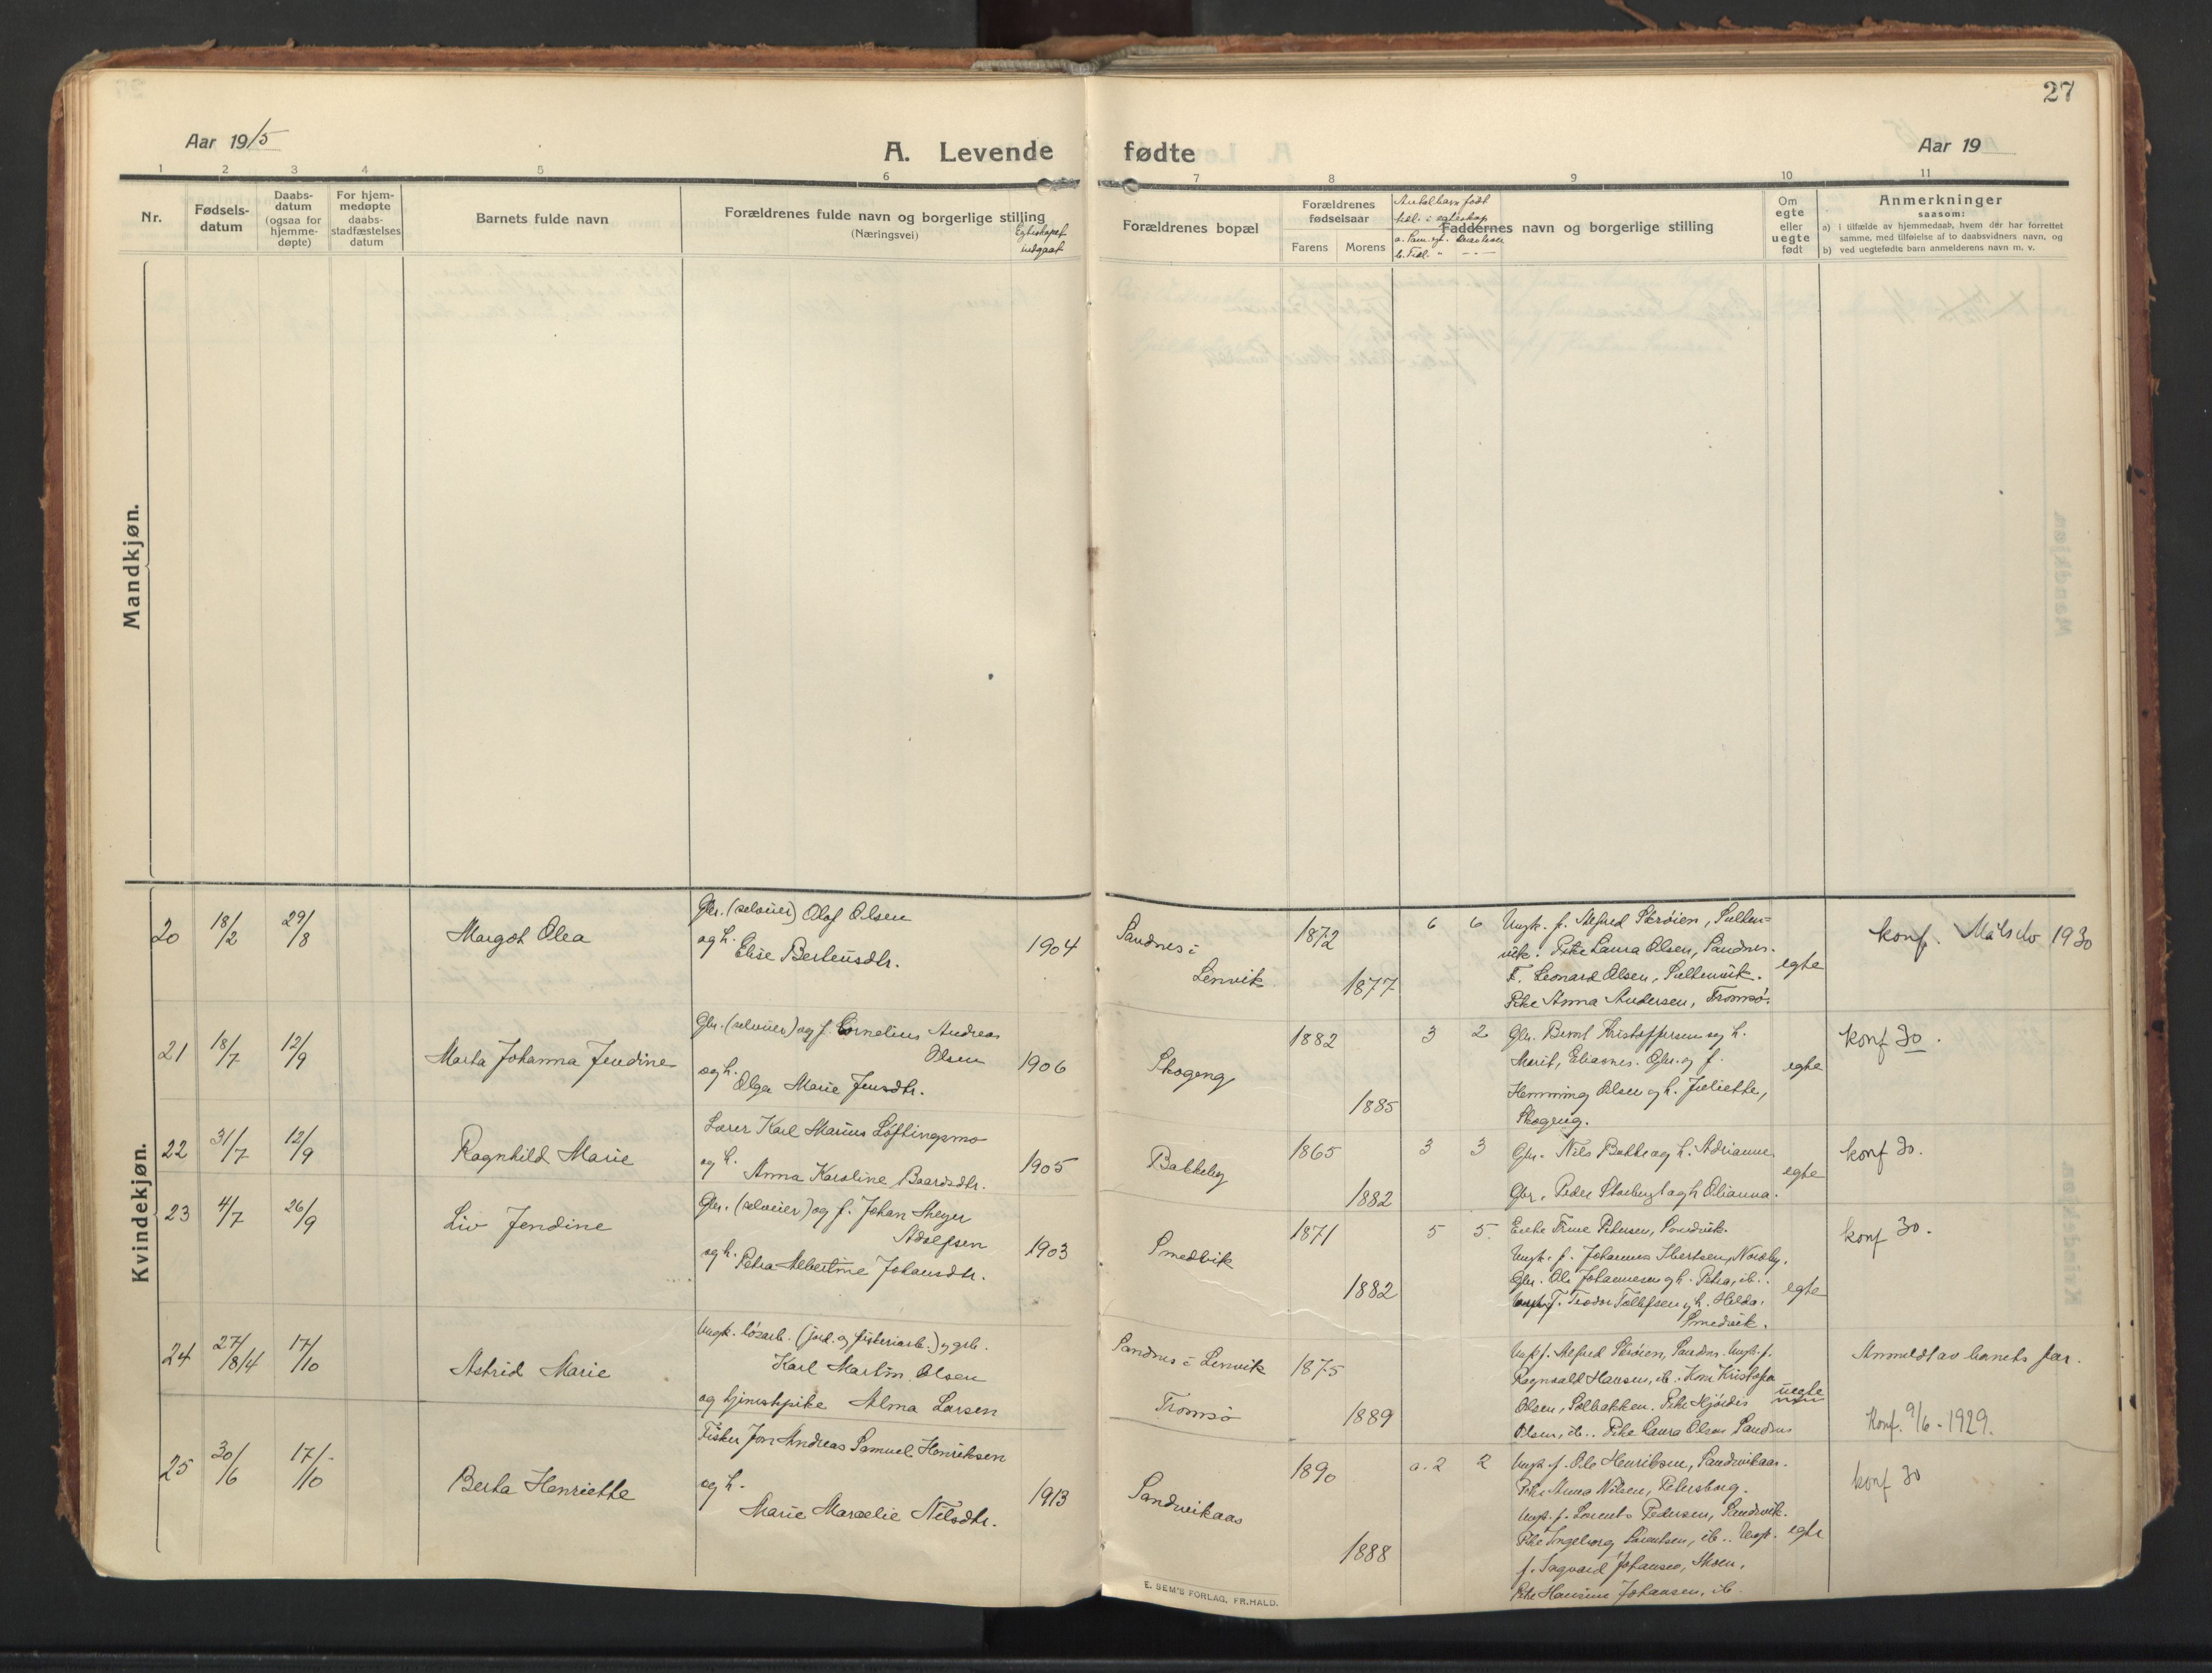 27
Aar 1915
A. Levende fødte
Aar 19
1 2 3 4 5 6 7 8 9 10 11
Nr.
Fødsels-
datum
Daabs-
datum
(ogsaa for
hjemme-
døpte)
For hjem-
medøpte
daabs-
stadfæstelses
datum
Barnets fulde navn
Forældrenes fulde navn og borgerlige stilling
(Næringsvei)
Egteskapet
indgaat
Forældrenes bopæl
Forældrenes
fødselsaar
Farens
Morens
Antal barn født
Faddernes navn og borgerlige stilling
Om
egte
eller
uegte
født
Anmerkninger
saasom:
a) i tilfælde av hjemmedaab, hvem der har forrettet
samme, med tilføielse af to daabsvidners navn, og
b) ved uegtefødte barn anmelderens navn m. v.
Mandkjøn.
Kvindekjøn.
20
18/2
29/8
Margot Olea
Gbr. (selveier) Olaf Olsen
og h. Elise Berteusdtr.
1904
Sandnes i
Lenvik
1872
1877
6 6
Ungk. f. Alfred Sørøien,
vik. Pike Laura Olsen, Sandnes.
F. Leonard Olsen,
Pike Anna Andersen, Tromsø.
egte
konf. Målselv 1930
21
18/7
12/9
Marta Johanna Jendine
Gbr. (selveier) og f. Cornelius Andreas
Olsen
og h. Olga Marie Jensdtr.
1906
Skogeng
1882
1885
3 2
Gbr. Bernt Kristoffersen og h.
Marit, Elvenes. Gbr. og f.
Hemming Olsen og h. Juliette,
Skogeng.
egte
konf 30.
22
31/7
12/9
Ragnhild Marie
Lærer Karl Marius Løftingsmo
og h. Anna Karoline Baardsdtr.
1905
Bakkeby
1865
1882
3 3
Gbr. Nils Bakke og h. Adrianne.
Gbr. Peder Storberg og h. Olianna.
egte
konf 30.
23
4/7
26/9
Liv Jendine
Gbr. (selveier) og f. Johan Meyer
Adolfsen
og h. Petra Albertine Johansdtr.
1903
Smedvik
1871
1882
5 5.
Enke Trine Petersen, Sandvik.
Ungk. f. Johannes Ibertsen, Nordby.
Gbr. Ole Johannesen og h. Petra, ib.
f. Teodor Tollefsen og h. Hilda.
Smedvik.
egte
konf 30.
24
27/8 14
17/10
Astrid Marie
Ungk. løsarb. (jord. og fiskeriarb.) og gsb.
Karl Martin Olsen
og tjenestepike Alma Larsen
Sandnes i Lenvik
Tromsø
1875
1889
Ungk. f. Alfred Sørøien, Sandnes. Ungk. f.
Ragnvald Hansen, ib. Kone Kristofa
Olsen, Solbakken. Pike Hjørdis
Olsen, ib.. Pike Laura Olsen Sandnes
uegte
Anmeldt av barnets far.
Konf. 9/6 - 1929.
25
30/6
17/10
Berta Henriette
Fisker Jon Andreas Samuel Henriksen
og h.
Marie Marselie Nilsdtr.
1913
Sandvikaas
1890
1888
a. 2 2
Ungk. f. Ole Henriksen, Sandvikaas.
Pike Anna Nilsen, Petersborg.
Ungk. f. Lorents Pedersen, Sandvik.
Pike Ingeborg Lorentsen, ib.. Ungk.
f. Ingvard Johansen, Moen,
Pike Hansine Johansen, ib.
egte
konf 30
E. SEM'S FORLAG, FR.HALD.